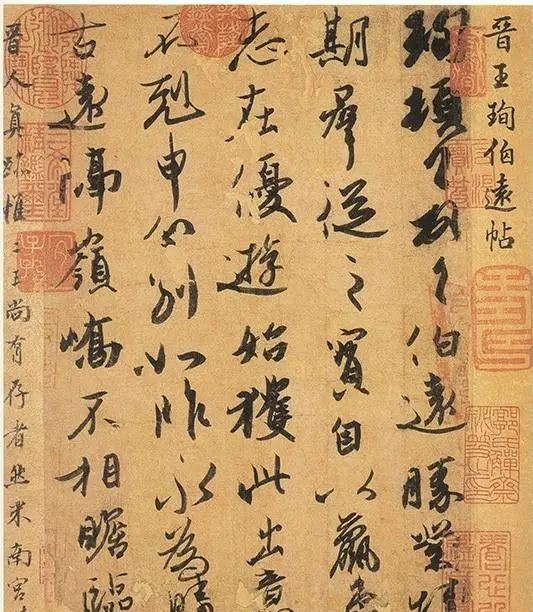 晉王珣伯遠帖
珣頓首頓首伯遠勝業情
期羣從之寶自以羸
志在優遊始獲此出意
不剋申分別如昨永為疇
古遠隔嶺嶠不相瞻臨
晉人真跡惟二王尚有存者然米南宮